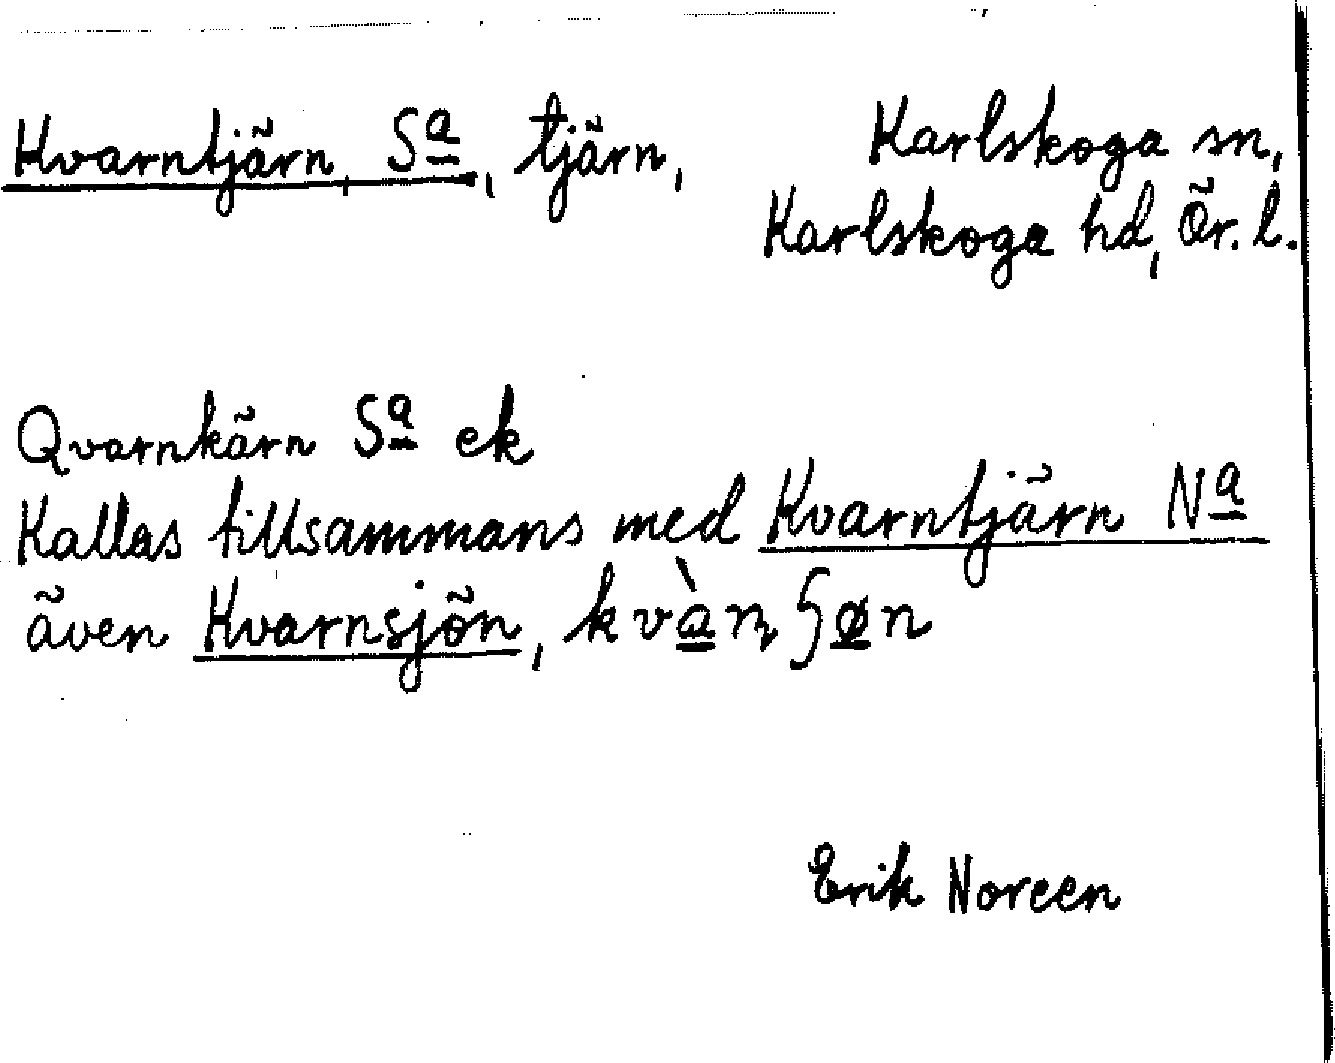 Kvarntjärn, Sᵃ, tjärn, Karlskoga sn,
Karlskoga hd, Ör. l.
Qvarnkärn Sᵃ ek
Kallas tillsammans med Kvarntjärn Nᵃ
även Kvarnsjön,
Erik Noreen